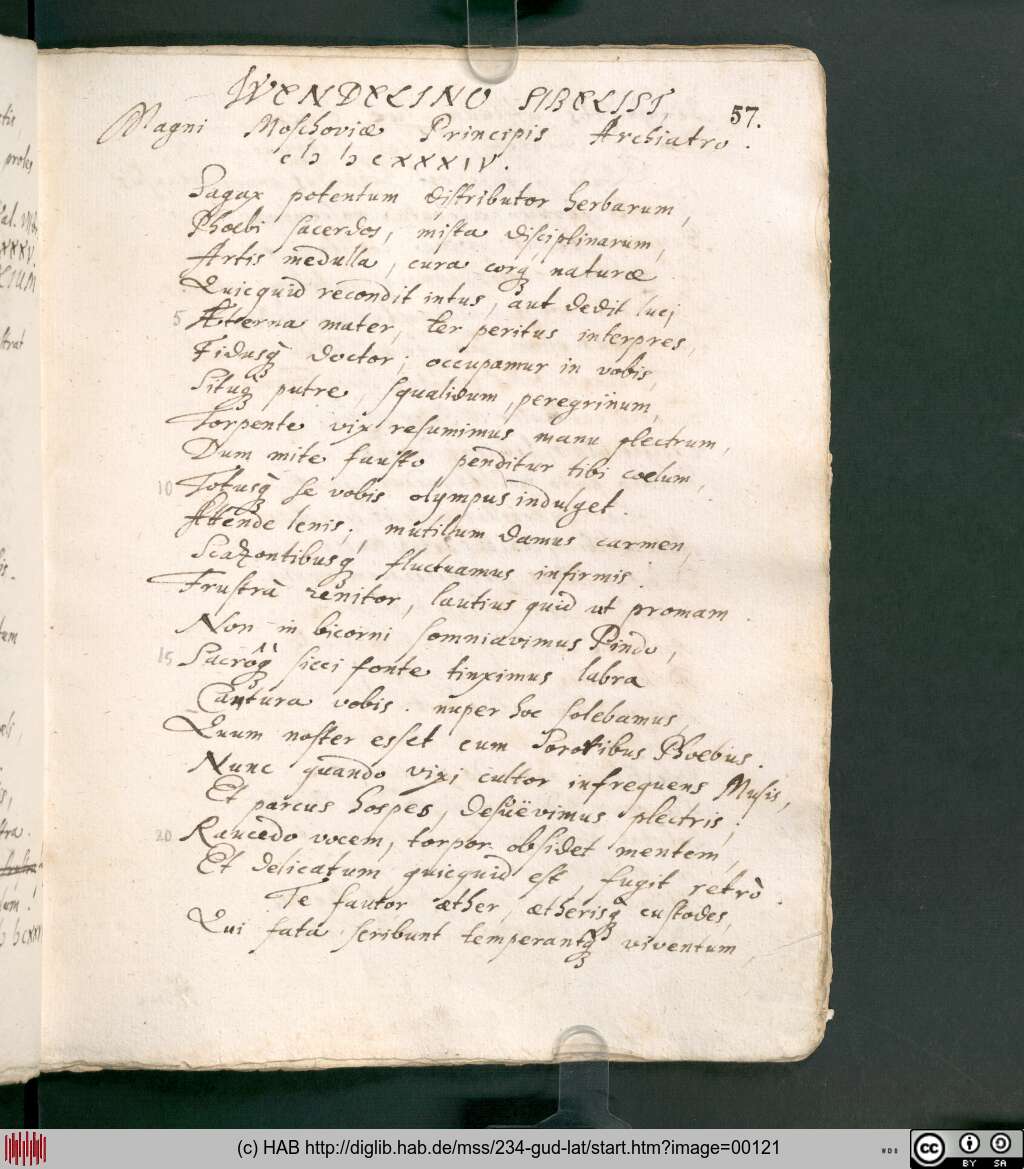 WENDELINO SIBELIST,
57.
Magni Moschoviæ Principis Archiatro.
cIɔ Iɔ cXXXIV.
Sagax potentum distributor herbarum,
Phœbi sacerdos, mista disciplinarum,
Artis medulla, cura corq̀ naturæ
Quicquid recondit intus, aut dedit luci
5 Æterna mater, ter peritus interpres,
Fidusq̀ doctor; occupamur in vobis,
Situq̀ putre, squalidum, peregrinum,
Torpente vix resumimus manu plectrum,
Dum mite fausto penditur tibi cœlum,
10 Totusq̀ se vobis olympus indulget.
Attende lenis; mutilum damus carmen,
Scazontibusq̀ fluctuamus infirmis.
Frustrà renitor, lautius quid ut promam.
Non in bicorni somniavimus Pindo,
15 Sacròq̀ sicci fonte tinximus labra
Cantura vobis. nuper hoc solebamus,
Quum noster esset cum Sororibus Phoebus.
Nunc quando vixi cultor infrequens Musis,
Et parcus hospes, desuëvimus plectris;
20 Raucedo vocem, torpor obsidet mentem,
Et delicatum quicquid est, fugit retrò.
Te fautor æther, ætherisq̀ custodes,
Qui fata scribunt temperantq̀ viventum,
(c) HAB http://diglib.hab.de/mss/234-gud-lat/start.htm?image=00121
WDB
cc
BY SA